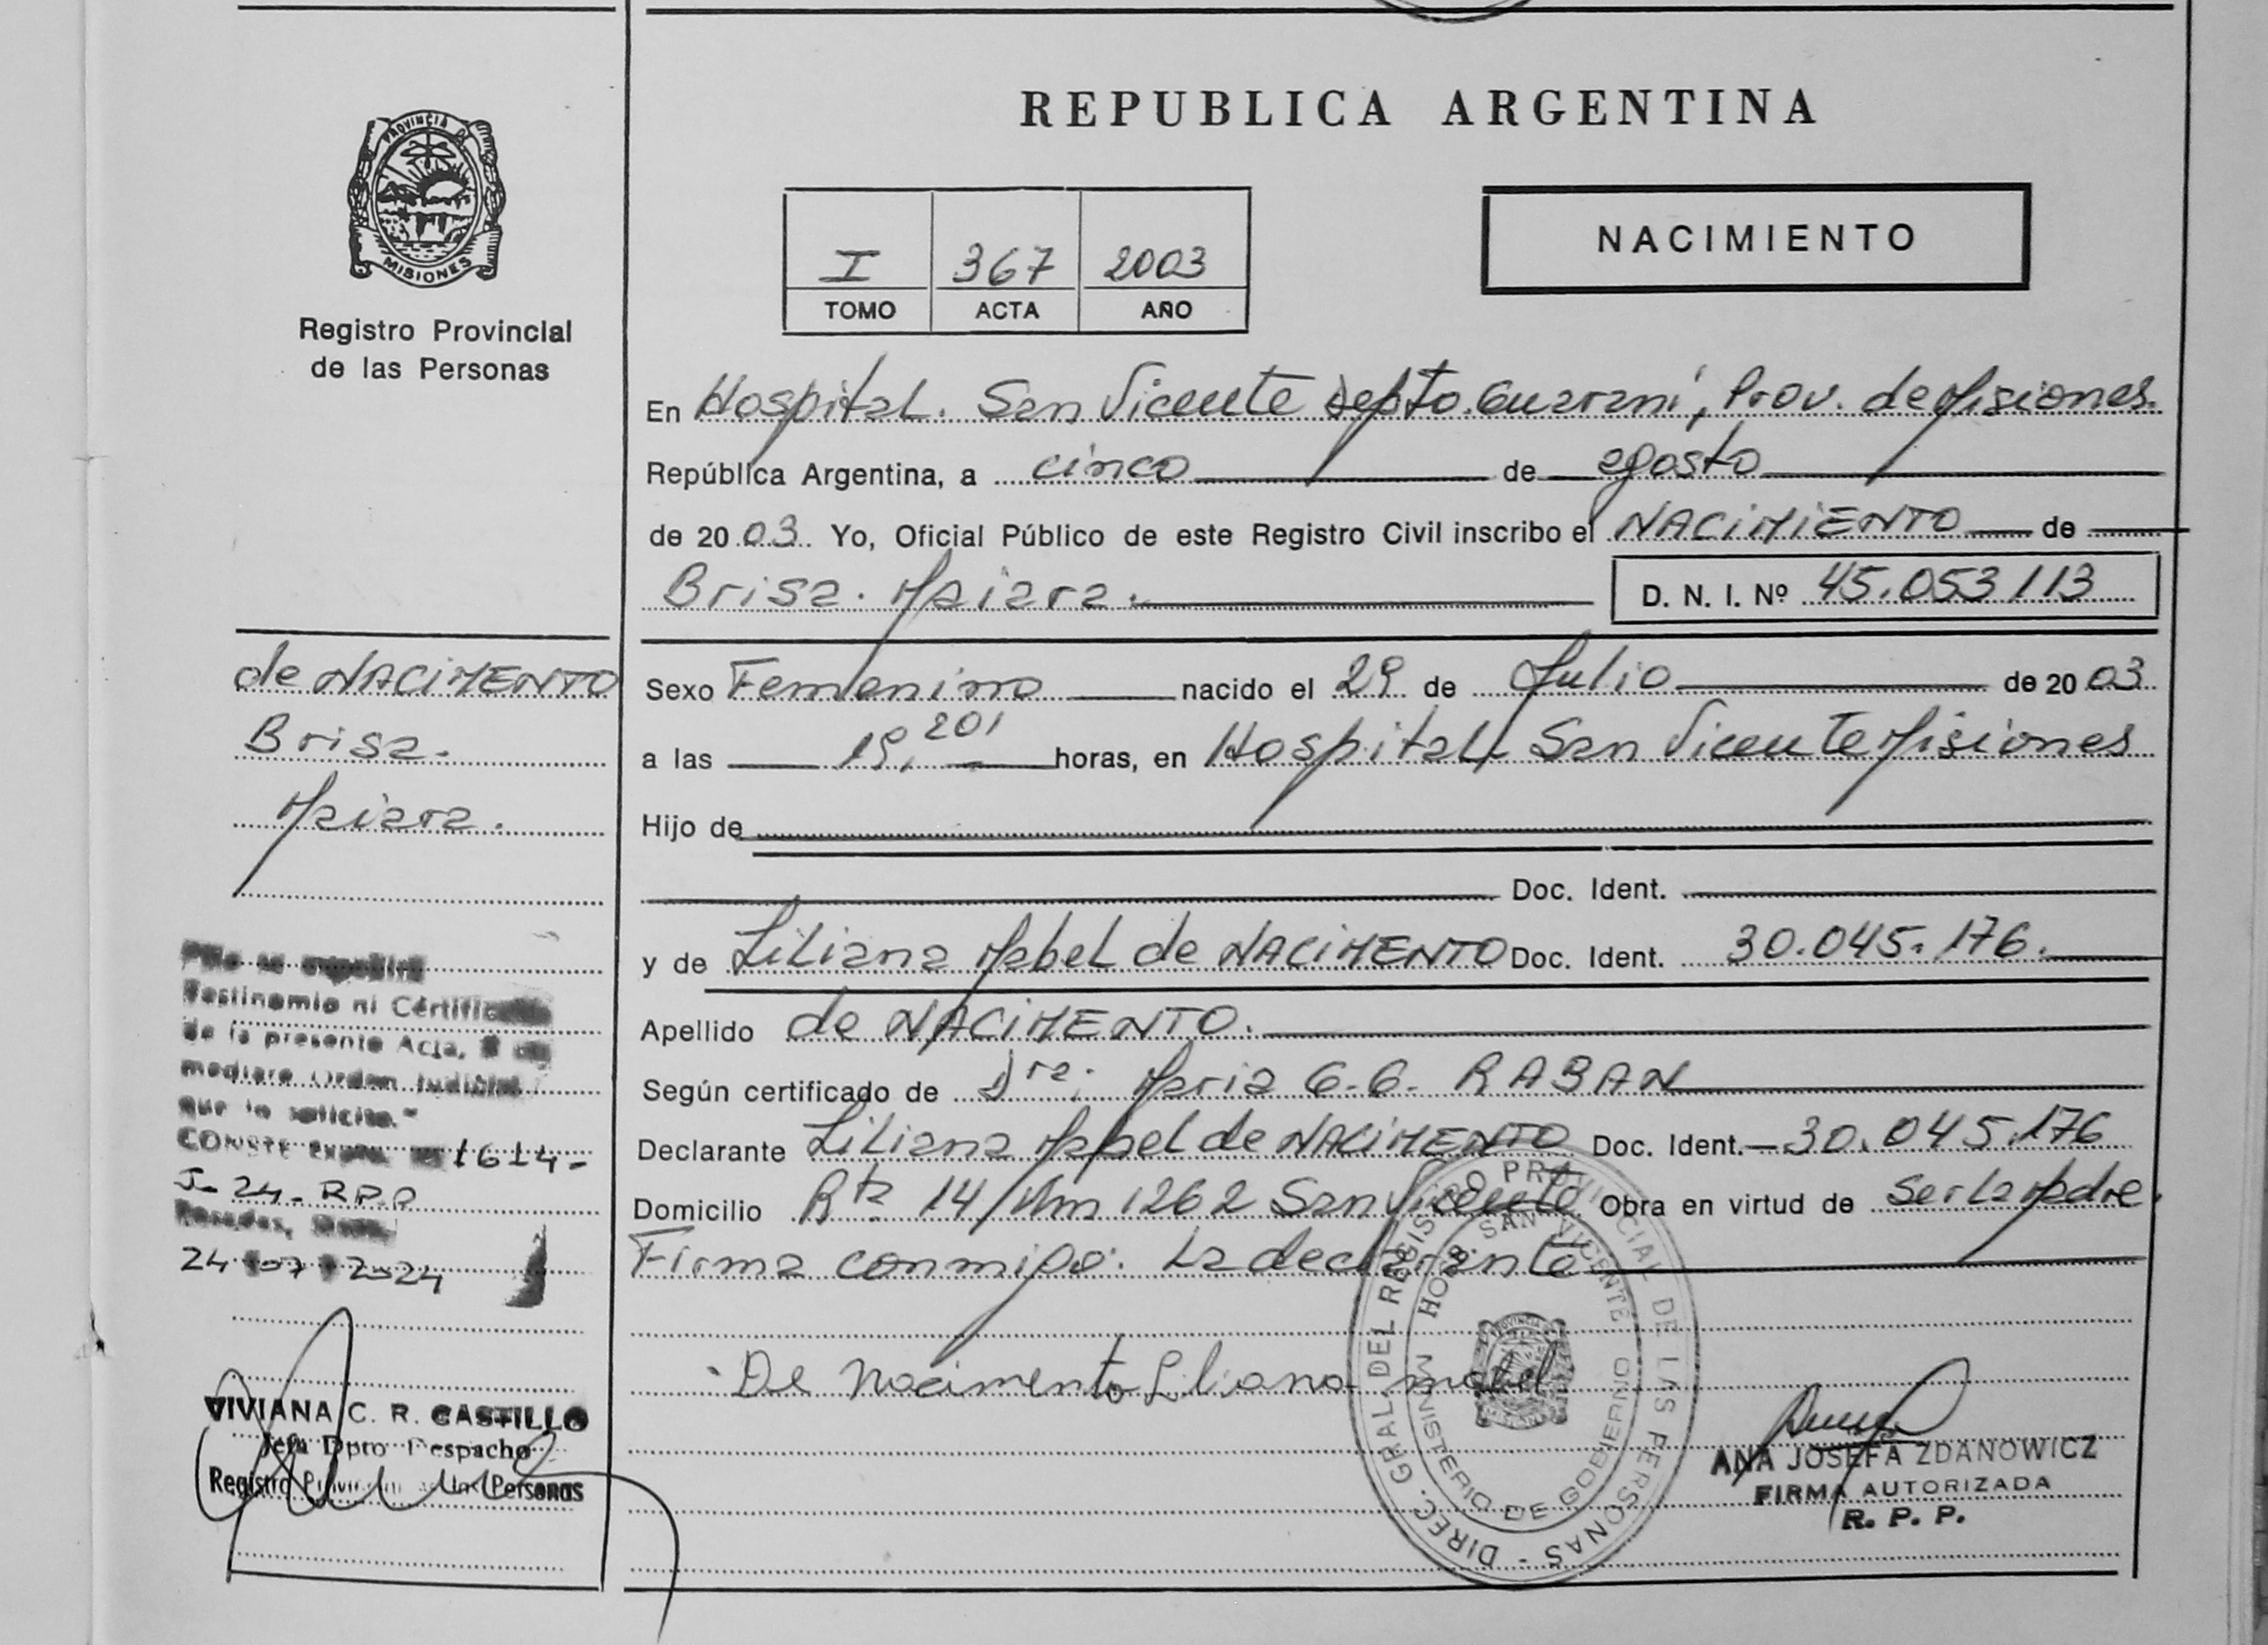 PROVINCIA DE
MISIONES
Registro Provincial
de las Personas
REPUBLICA ARGENTINA
I 367 2003
TOMO ACTA AÑO
NACIMIENTO
En Hospital. San Vicente Depto. Guarani, Prov. de Misiones.
República Argentina, a cinco de agosto
de 2003. Yo, Oficial Público de este Registro Civil inscribo el NACIMIENTO de
Brisa. Maiara. D. N. I. Nº 45.053113
Sexo Femenino nacido el 29 de Julio de 2003
a las 19,20' horas, en Hospital, San Vicente Misiones
Hijo de
Doc. Ident.
y de Liliana Mabel de NACIMENTO Doc. Ident. 30.045.176.
Apellido de NACIMENTO.
Según certificado de Dra. Maria G.G. RABAN
Declarante Liliana Mabel de NACIMENTO Doc. Ident. 30.045.176
Domicilio Rta 14 Km 1262 San Vicente Obra en virtud de ser la Madre.
Firma conmigo: La declarante
De Nacimento Liliana mabel
DIREC. GRAL. DEL REGISTRO PROVINCIAL DE LAS PERSONAS -
HOSP. SAN VICENTE
MINISTERIO DE GOBIERNO
ANA JOSEFA ZDANOWICZ
FIRMA AUTORIZADA
R. P. P.
de NACIMENTO
Brisa.
Maiara.
se expedirá
Testimonio ni Certificado
de la presente Acta,
mediare Orden Judicial
que lo solicite."
CONSTE EXPTE. 1614-
J-24-R.P.P
Posadas,
24 07 2024
VIVIANA C. R. CASTILLO
Jefa Dpto. Despacho
Registro Personas